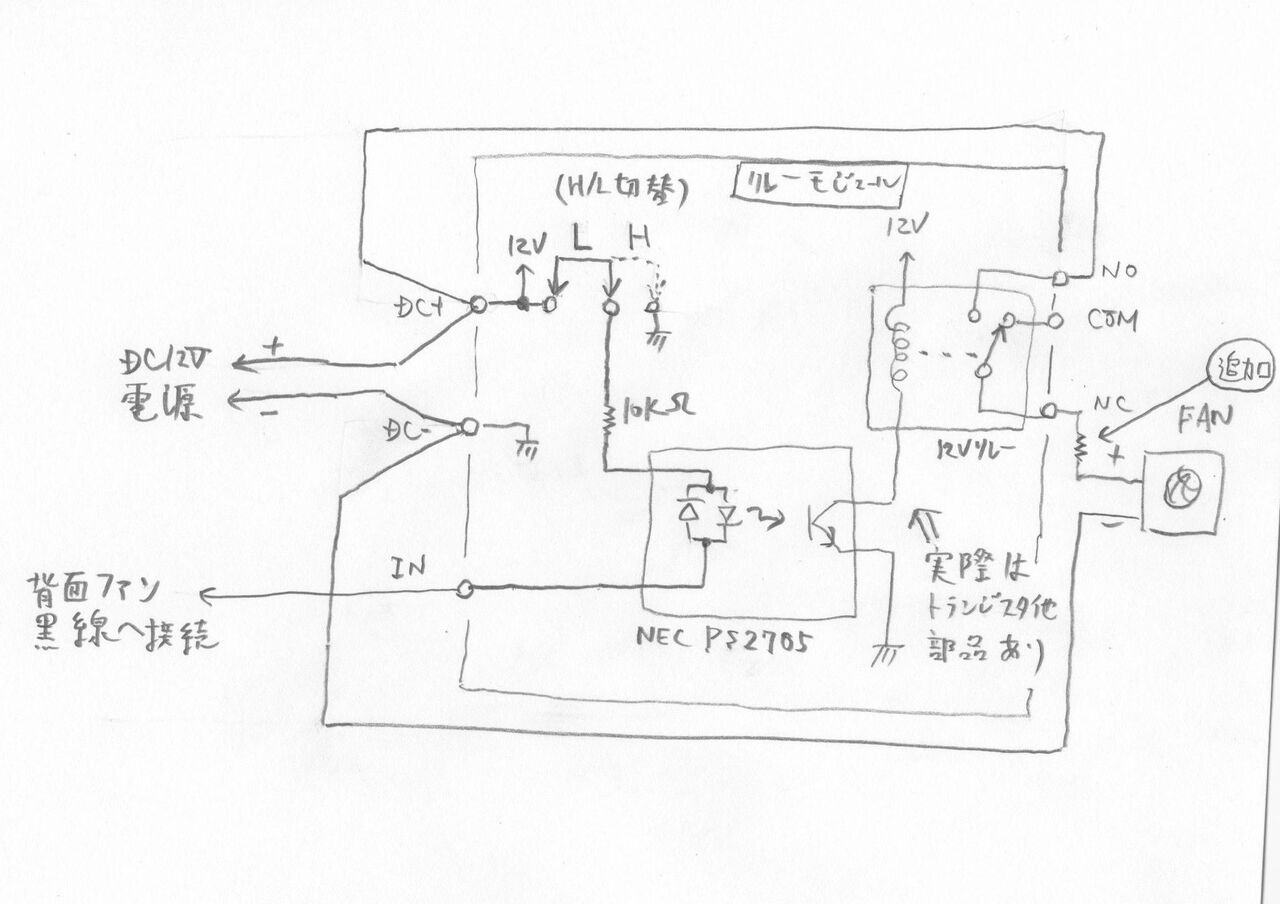 リレーモジュール
(H/L切替)
L H
12V
12V
DC+
NO
COM
DC12V
電源
+
-
DC-
10KΩ
NC
追加
FAN
+
-
12Vリレー
IN
背面ファン
黒線へ接続
NEC PS2705
実際は
トランジスタ他
部品あり